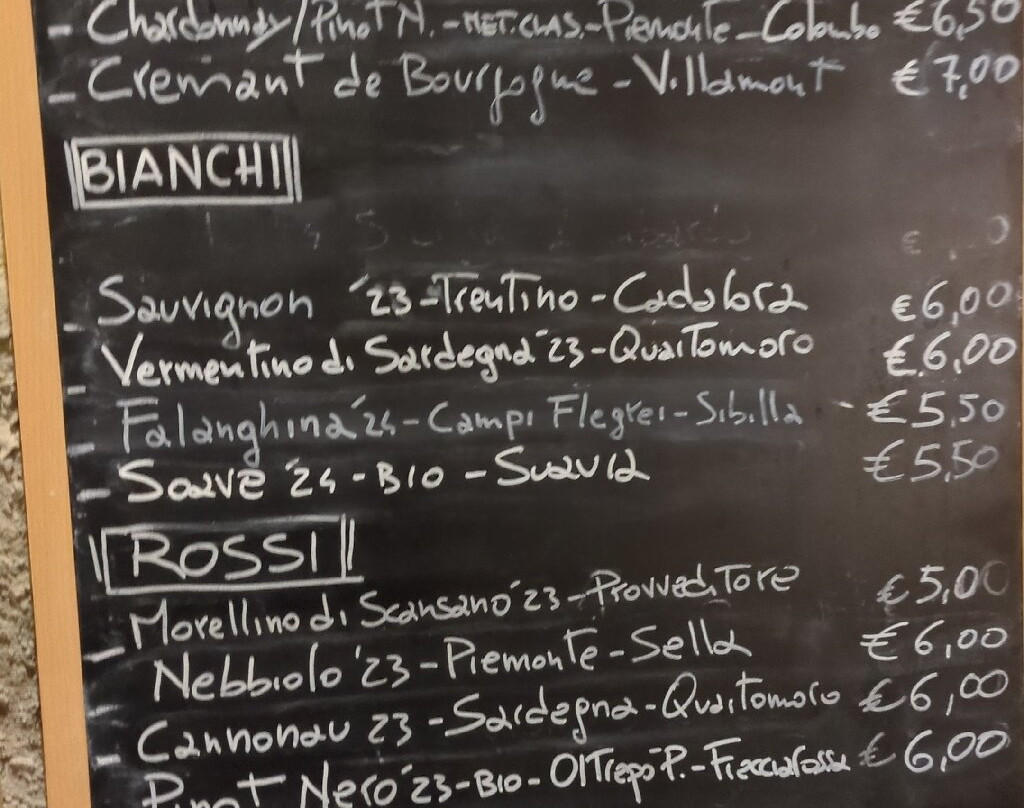 - Chardonnay/Pinot N. - MET. CLAS. - Piemonte - Colombo €6,50
- Cremant de Bourgogne - Villamont €7,00
BIANCHI
€ 0
- Sauvignon '23 - Trentino - Cadabra €6,00
- Vermentino di Sardegna '23 - Quartomoro €6,00
- Falanghina '24 - Campi Flegrei - Sibilla - €5,50
- Soave '24 - BIO - Suavia €5,50
ROSSI
- Morellino di Scansano '23 - Provveditore €5,00
- Nebbiolo '23 - Piemonte - Sella €6,00
- Cannonau 23 - Sardegna - Quartomoro €6,00
Pinot Nero '23 - BIO - Oltrepò P. - Frecciarossa €6,00